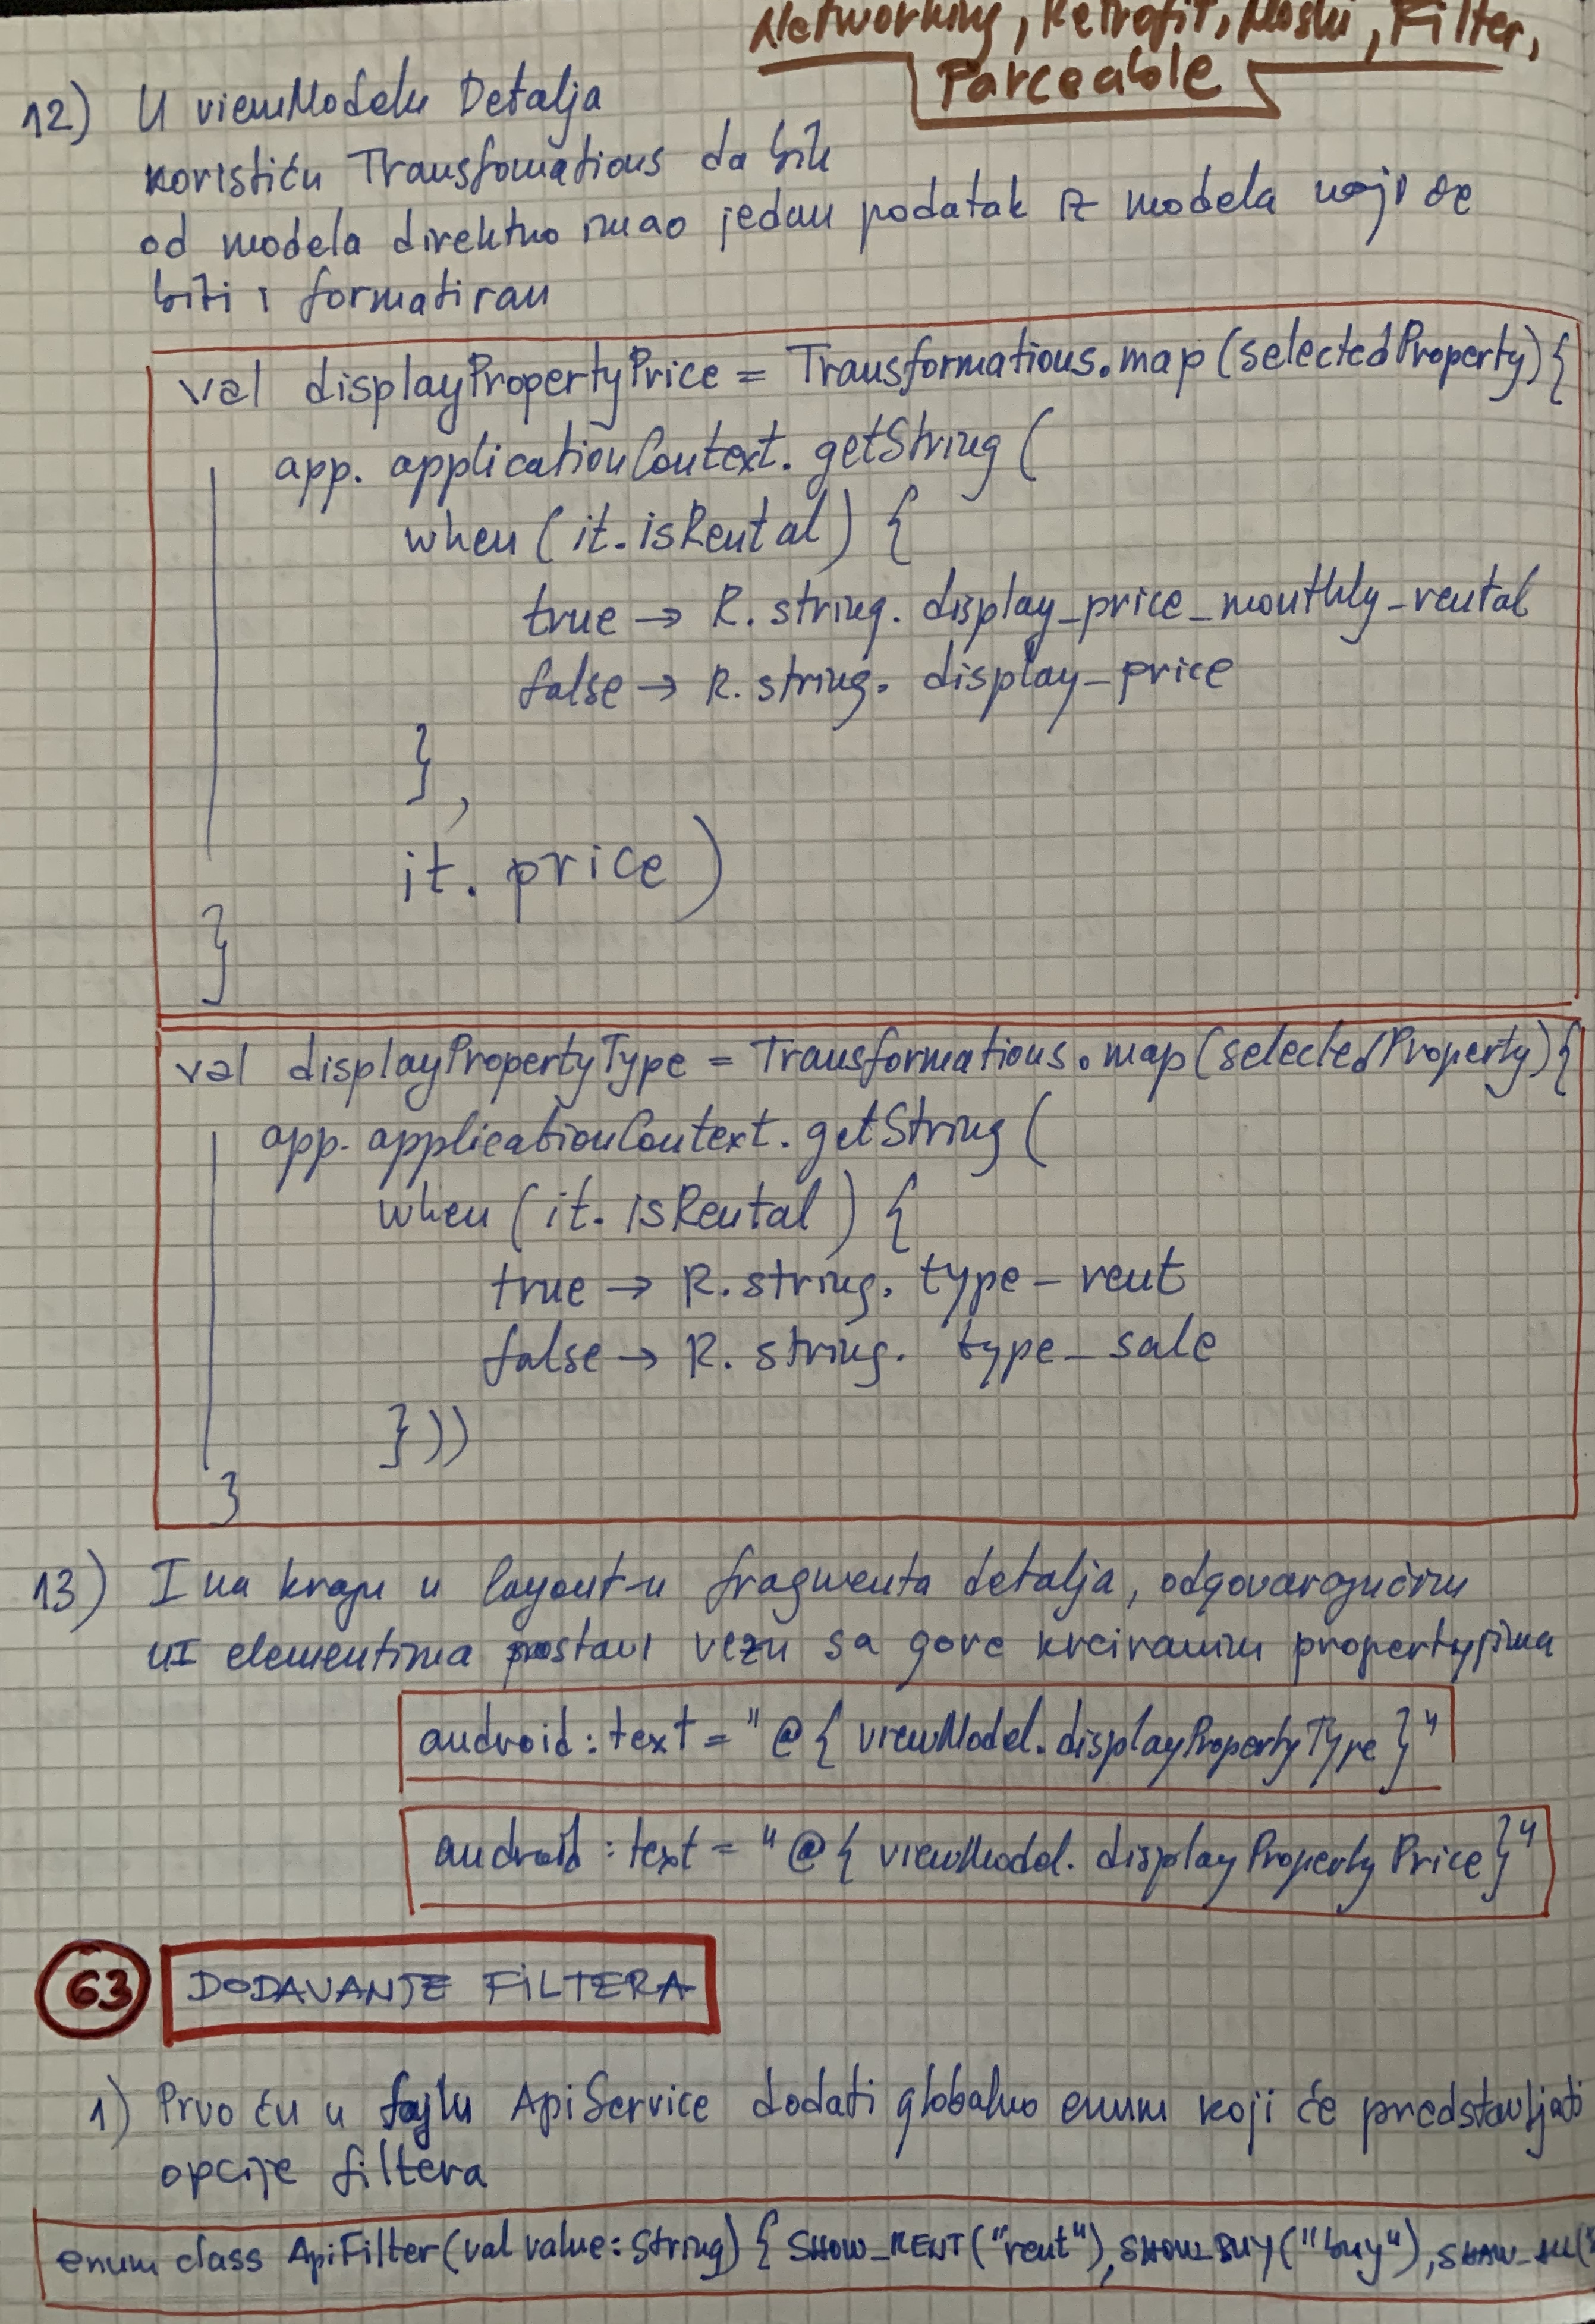 Networking, Retrofit, Moshi, Filter,
Parceable
12) U viewModelu Detalja
koristiću Transfomations da bih
od modela direktno imao jedan podatak iz modela koji će
biti i formatiran
val displayPropertyPrice = Transformations.map(selectedProperty){
app. applicationContext. getString(
when (it. isRental) {
true → R. string. display_price_monthly_rental
false → R. string. display_price
},
it. price)
}
val displayPropertyType = Transformations.map(selectedProperty){
app. applicationContext. getString(
when (it. isRental) {
true → R. string. type_rent
false → R. string. type_sale
}))
}
13) I na kraju u layout-u fragmenta detalja, odgovarajućim
UI elementima postavi vezu sa gore kreiranim propertyjima
android:text = "@{ viewModel. displayPropertyType }"
android:text = "@{ viewModel. displayPropertyPrice}"
63 DODAVANJE FILTERA
1) Prvo ću u fajlu ApiService dodati globalno enum koji će predstavljati
opcije filtera
enum class ApiFilter(val value: String) { SHOW_RENT("rent"), SHOW_BUY("buy"), SHOW_ALL("